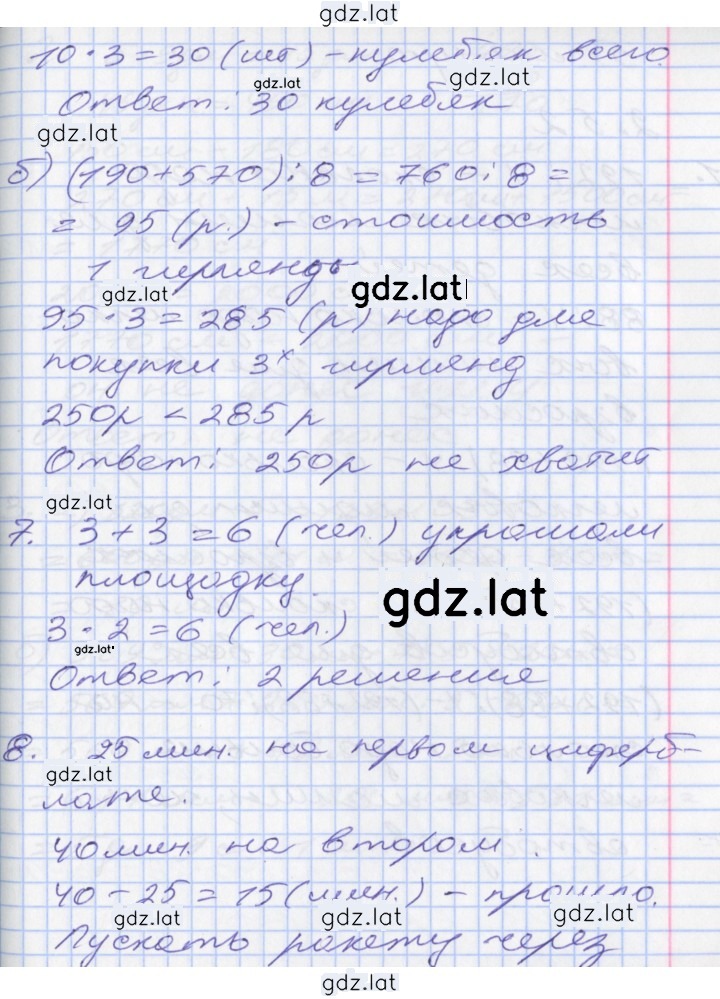 gdz.lat
10 · 3 = 30 (шт) - кулебяк всего.
gdz.lat gdz.lat
Ответ: 30 кулебяк
gdz.lat
б) (190+570):8 = 760:8 =
= 95 (р.) - стоимость
1 гирлянды
gdz.lat gdz.lat
95 · 3 = 285 (р) надо для
покупки 3х гирлянд
250р < 285 р
Ответ: 250р не хватит
gdz.lat
7. 3 + 3 = 6 (чел.) украшали
площадку.
gdz.lat
3 · 2 = 6 (чел.)
gdz.lat
Ответ: 2 решения
8. 25 мин. на первом циферб-
gdz.lat
лате.
40 мин. на втором.
40 - 25 = 15 (мин.) - прошло.
gdz.lat gdz.lat gdz.lat
Пускать ракету через
gdz.lat